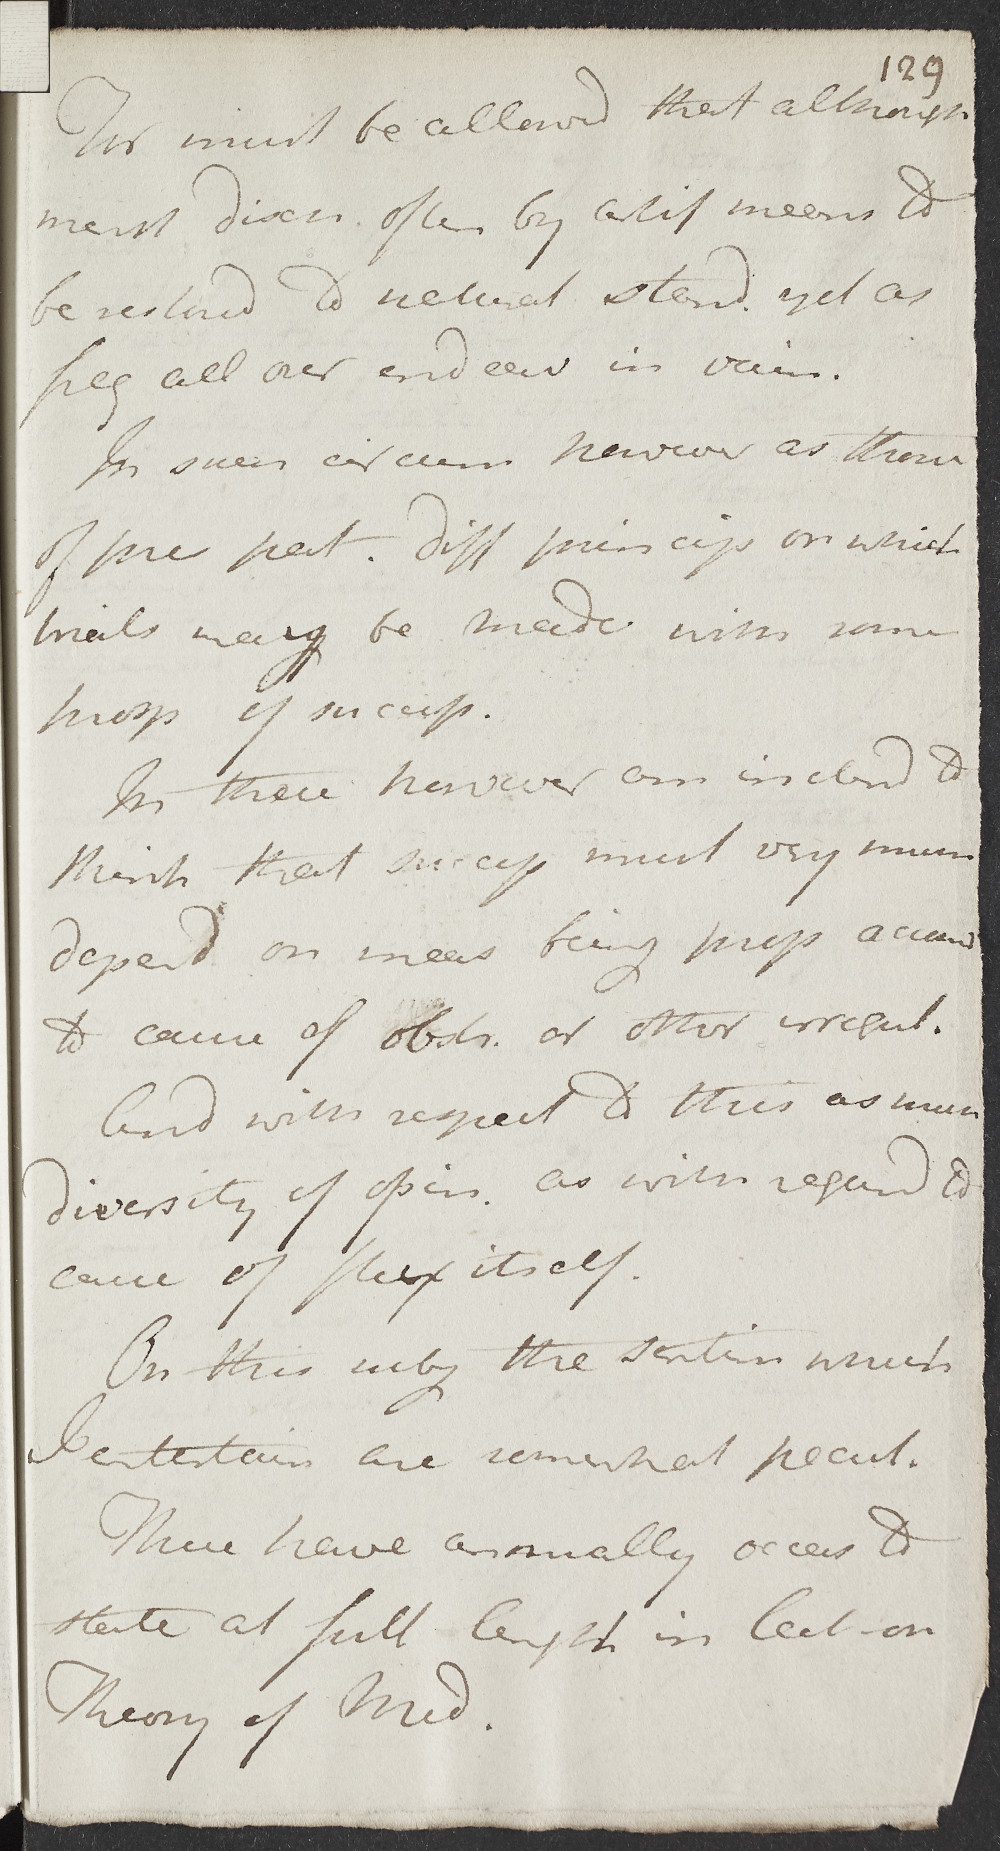 129
For must be allowed that although
menst disch. often by artif means to
be restored to natural stand. yet as
freq all our endeav in vain.
In such circum however as those
of pres pat. diff princips on which
trials may be made with some
prosp of success.
In these however am inclend to
think that success must very much
depend on meas being prop accomd
to cause of obstr. or other irregul.
And with respect to this as much
diversity of opin. as with regard to
cause of flux itself.
On this subj the sentim which
I entertain are somewhat pecul.
These have annually occas to
state at full length in Lect on
Theory of Med.